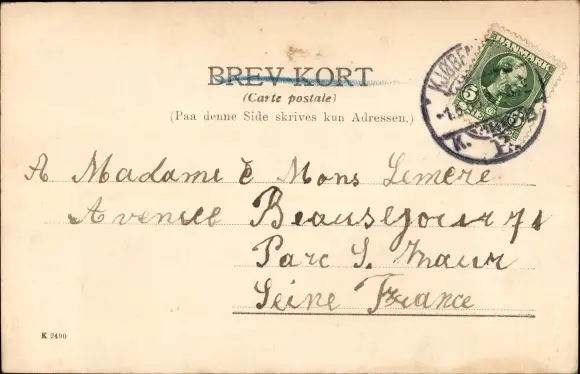 BREV KORT
(Carte postale)
(Paa denne Side skrives kun Adressen.)
DANMARK
5 5
KJØBEN
K.
A Madame è Mons Lemere
Avenue Beauséjour 71
Parc S. Maur
Seine France
K 2490